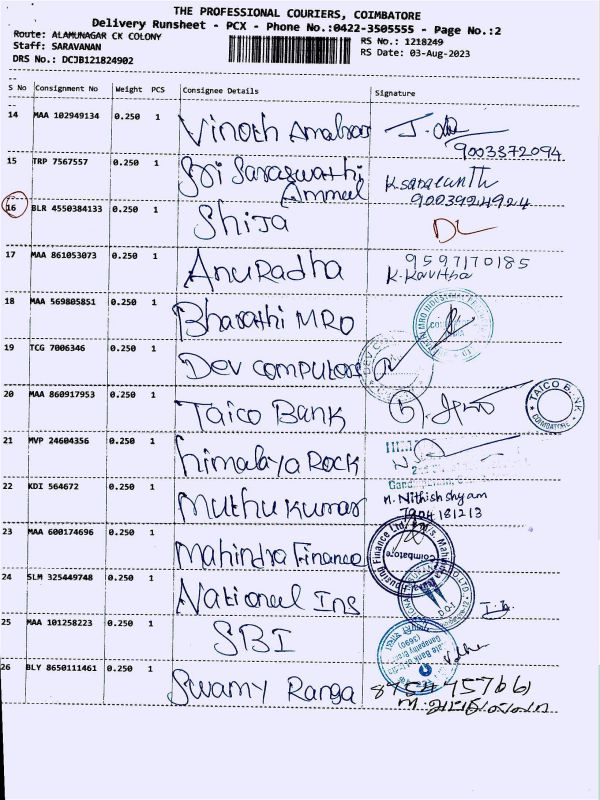 THE PROFESSIONAL COURIERS, COIMBATORE
Delivery Runsheet - PCX - Phone No.:0422-3505555 - Page No.:2
Route: ALAMUNAGAR CK COLONY
RS No.: 1218249
Staff: SARAVANAN
RS Date: 03-Aug-2023
DRS No.: DCJB121824902
S No Consignment No Weight PCS Consignee Details Signature
14 MAA 102949134 0.250 1 Vinoth
9003372094
15 TRP 7567557 0.250 1 Sri Saraswathi
Ammal
9003924924
16 BLR 4550384133 0.250 1 Shija
17 MAA 861053073 0.250 1 Anuradha 9597170185
K. Kavitha
18 MAA 569805851 0.250 1 Bharathi MRO
19 TCG 7006346 0.250 1 Dev computers
20 MAA 860917953 0.250 1 Taico Bank
TAICO BANK
COIMBATORE
21 MVP 24604356 0.250 1 himalaya Rock
22 KDI 564672 0.250 1 Muthukumar M. Nithishshyam
7904181213
23 MAA 600174696 0.250 1 Mahindra Finance
Coimbatore
24 SLM 325449748 0.250 1 National Ins
25 MAA 101258223 0.250 1 SBI
26 BLY 8650111461 0.250 1 Swamy Ranga 8754457661